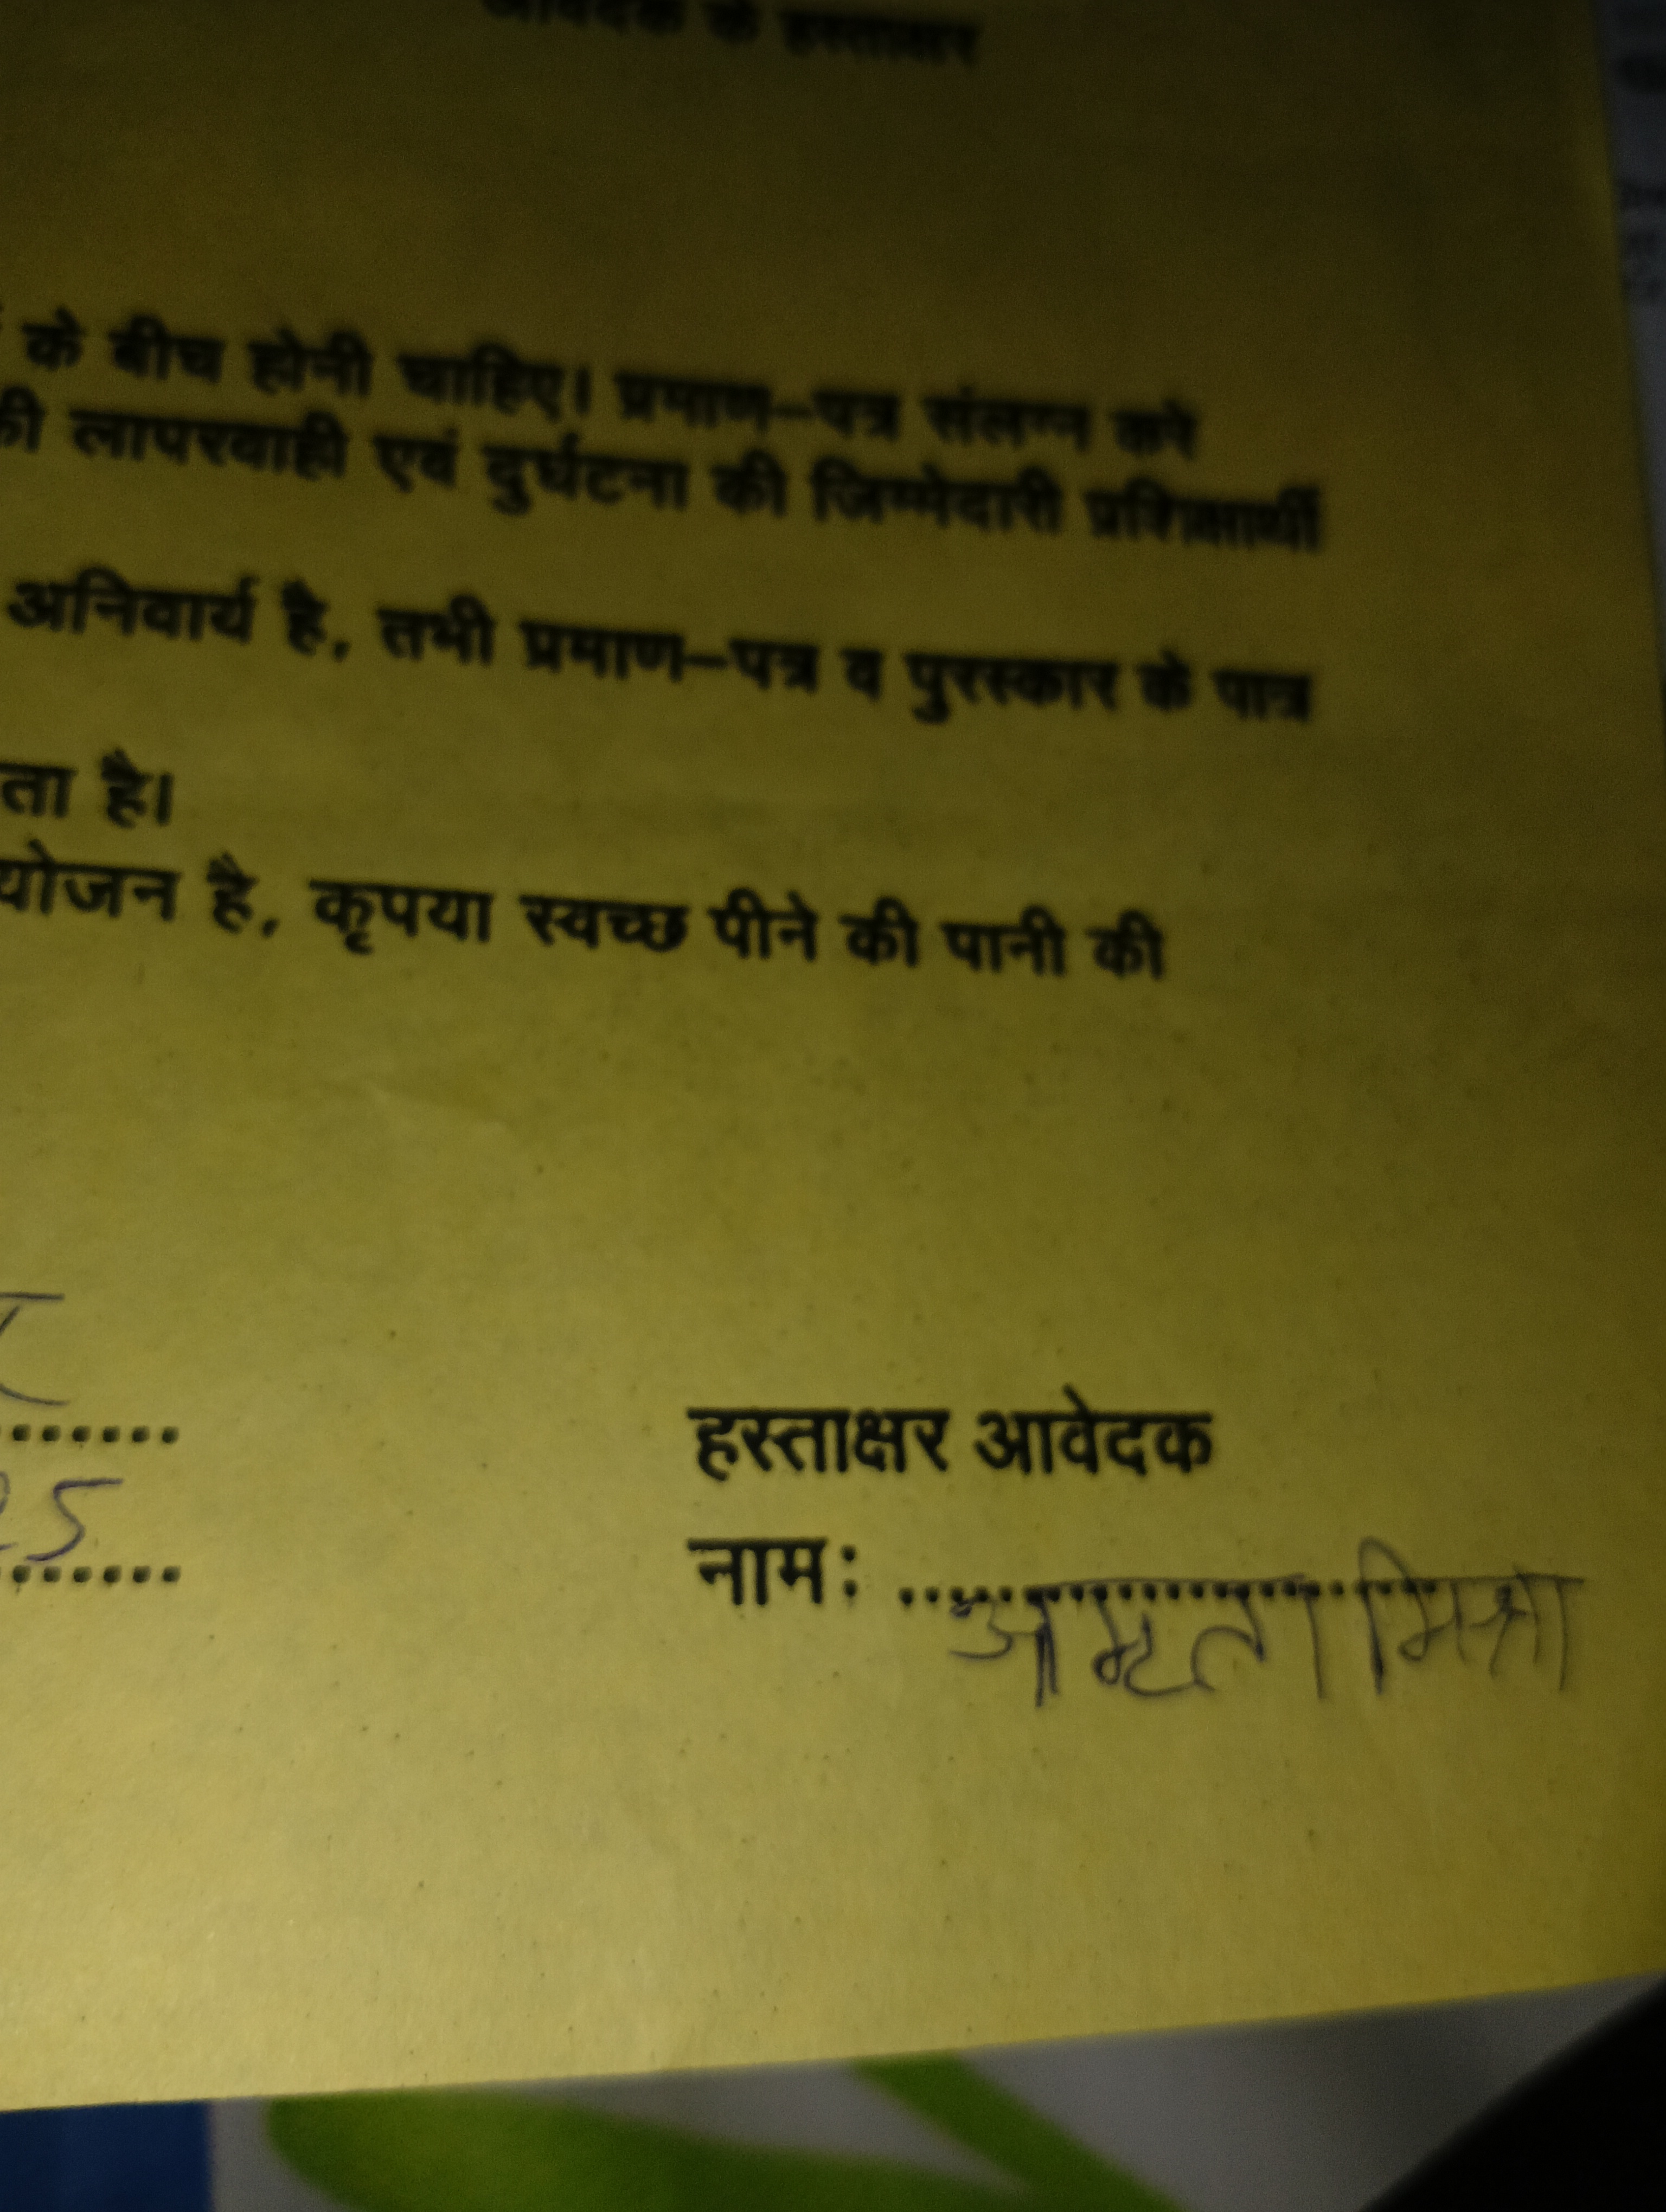 आवेदक के हस्ताक्षर
के बीच होनी चाहिए। प्रमाण–पत्र संलग्न करे
की लापरवाही एवं दुर्घटना की जिम्मेदारी प्रशिक्षार्थी
अनिवार्य है, तभी प्रमाण–पत्र व पुरस्कार के पात्र
ता है।
योजन है, कृपया स्वच्छ पीने की पानी की
हस्ताक्षर आवेदक
25
नाम: अमृता मिश्रा